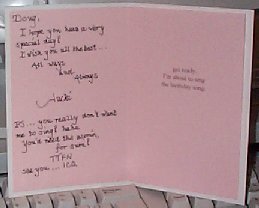 Doug,
I hope you have a very
special day!
I wish you all the best...
All ways
and
always
Jackie
P.S... you really don't want
me to sing! haha
You'd need the aspirin,
for sure!
TTFN
see you... ICQ
get ready.
I'm about to sing
the birthday song.